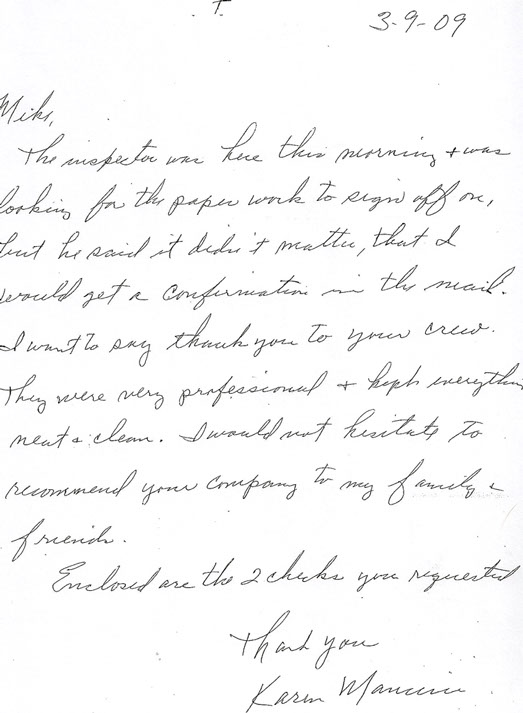 3-9-09
Mike,
The inspector was here this morning + was
looking for the paper work to sign off on,
but he said it didn't matter, that I
would get a confirmation in the mail.
I want to say thank you to your crew.
They were very professional + kept everything
neat & clean. I would not hesitate to
recommend your company to my family &
friends.
Enclosed are the 2 checks you requested
Thank you
Karen Mancini